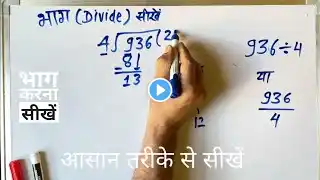 भाग (Divide) सीखें
4√936(2
81
13
936÷4
या
936
4
12
भाग
करना
सीखें
आसान तरीके से सीखें